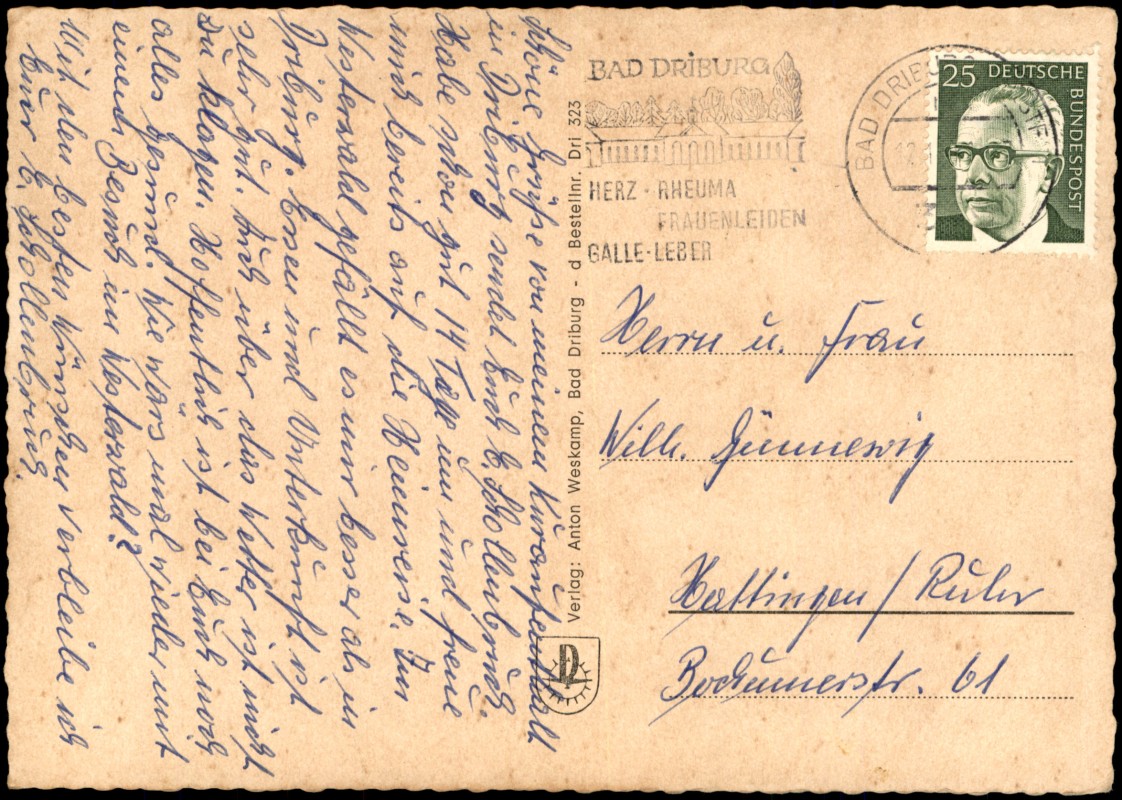 Schöne Grüße von meinem Kuraufenthalt
in Driburg sendet Euch E. Schollenbruch.
Habe schon gut 14 Tage um und freue
mich bereits auf die Heimreise. Im
Westerwald gefällt es mir besser als in
Driburg. Essen und Unterkunft ist
sehr gut. Auch über das Wetter ist nicht
zu klagen. Hoffentlich ist bei Euch noch
alles gesund. Wie wärs mal wieder mit
einem Besuch im Westerwald?
Mit den besten Wünschen verbleibe ich
Eure E. Schollenbruch.
Verlag: Anton Weskamp, Bad Driburg - d Bestellnr. Dri 323
BAD DRIBURG
HERZ · RHEUMA
FRAUENLEIDEN
GALLE · LEBER
BAD DRIBURG
25 DEUTSCHE
BUNDESPOST
Herrn u. Frau
Willi. Gennewig
Hattingen/Ruhr
Bochumerstr. 61